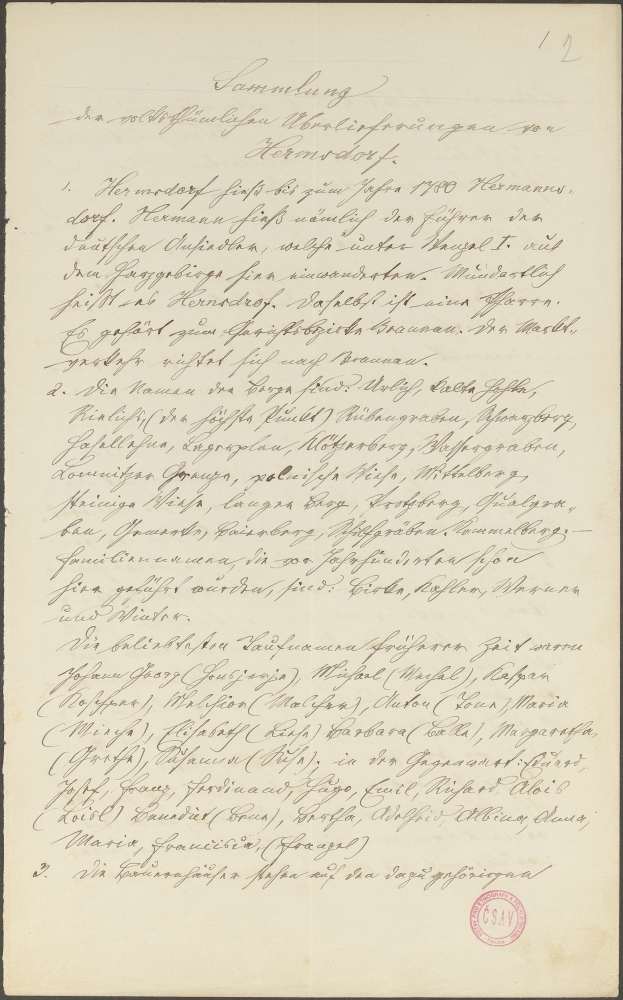 1 2
Sammlung
der volksthümlichen Überlieferungen von
Hermsdorf.
1. Hermsdorf hieß bis zum Jahre 1780 Hermanns-
dorf. Hermann hieß nämlich der Führer der
deutschen Ansiedler, welche unter Wenzel I. aus
dem Harzgebirge hier einwanderten. Mundartlich
heißt es Hernsdrof. Daselbst ist eine Pfarre.
Es gehört zum Gerichtsbezirke Braunau. Der Markt-
verkehr richtet sich nach Braunau.
2. Die Namen der Berge sind: Urlich, kalte
(der höchste Punkt) Rübengraben,
Hasellehne, Lagerplan, Klötzerberg, Wassergraben,
Lomnitzer Grenze, polnische Wiese, Mittelberg,
steinige Wiese, langer Berg, Qualgra-
ben, Schilfgräben, Kummelberg. —
Familiennamen, die vor Jahrhunderten schon
hier geführt wurden, sind: Birke, Kahler, Werner
und Winter.
Die beliebtesten Taufnamen früherer Zeit waren
Johann Georg (Honsjerje), Michael (Mechel), Kaspar
Melchior (Malcher), Anton (Tone), Maria
Elisabeth (Liese) Barbara Margaretha,
(Grethe), Susanna (Suse), in der Gegenwart: Eduard,
Josef, Franz, Ferdinand, Hugo, Emil, Richard, Alois
(Loisl) Benedict (Bene), Bertha, Adelheid, Albina, Anna,
Maria, Francisca, (Franzel)
3. Die Bauernhäuser stehen auf den dazu gehörigen
ČSAV